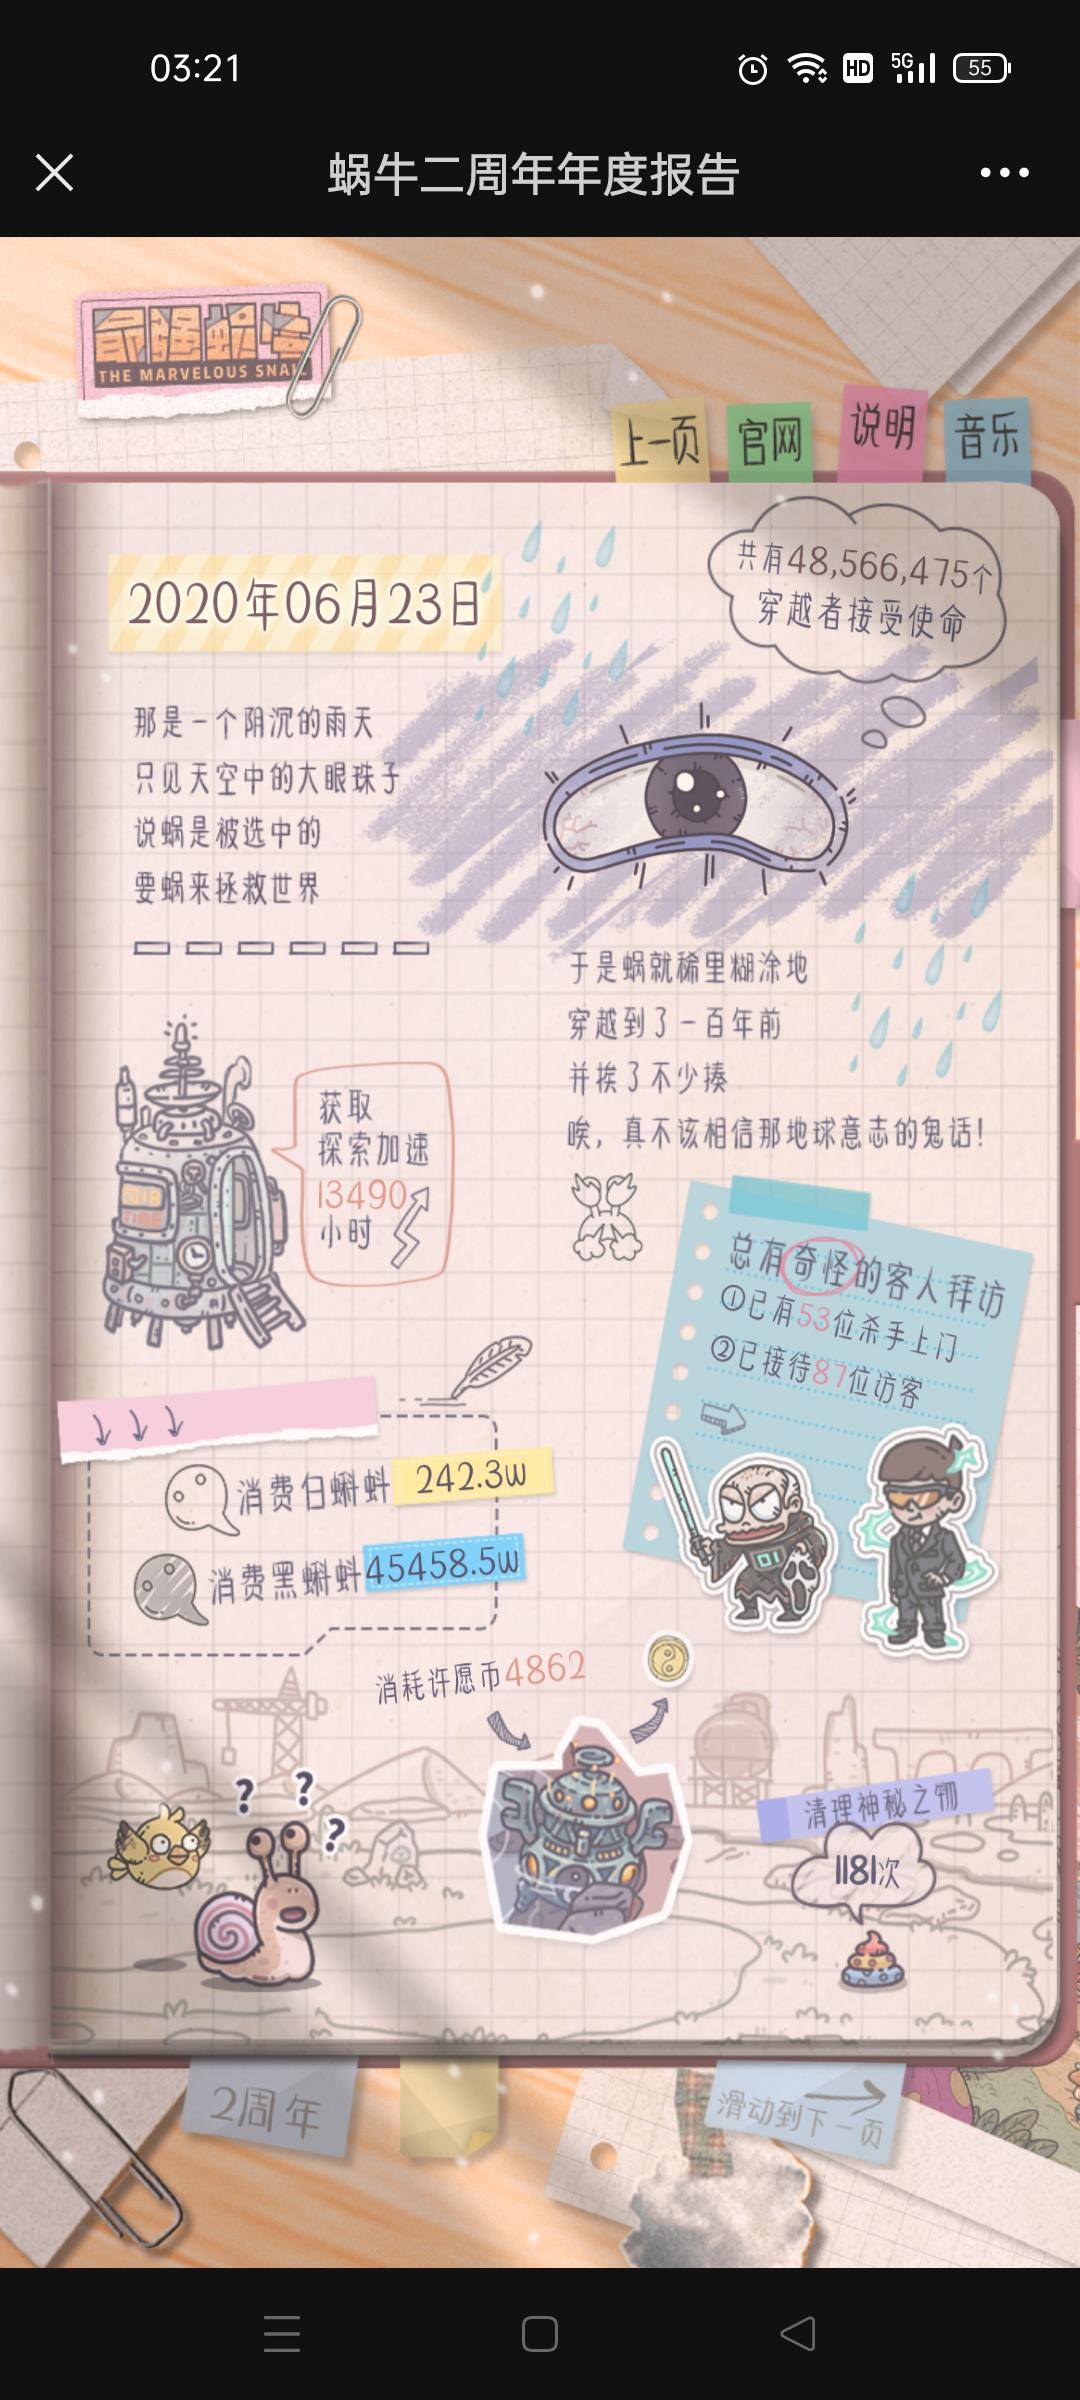 03:21
HD
5G
55
蜗牛二周年年度报告
最强蜗牛
THE MARVELOUS SNAIL
上一页
官网
说明
音乐
2020年06月23日
共有48,566,475个
穿越者接受使命
那是一个阴沉的雨天
只见天空中的大眼珠子
说蜗是被选中的
要蜗来拯救世界
于是蜗就稀里糊涂地
穿越到了一百年前
并挨了不少揍
唉，真不该相信那地球意志的鬼话！
获取
探索加速
13490
小时
2018
TIME
总有奇怪的客人拜访
①已有53位杀手上门
②已接待87位访客
消费白蝌蚪 242.3w
消费黑蝌蚪 45458.5w
消耗许愿币4862
? ? ?
清理神秘之物
1181次
2周年
滑动到下一页